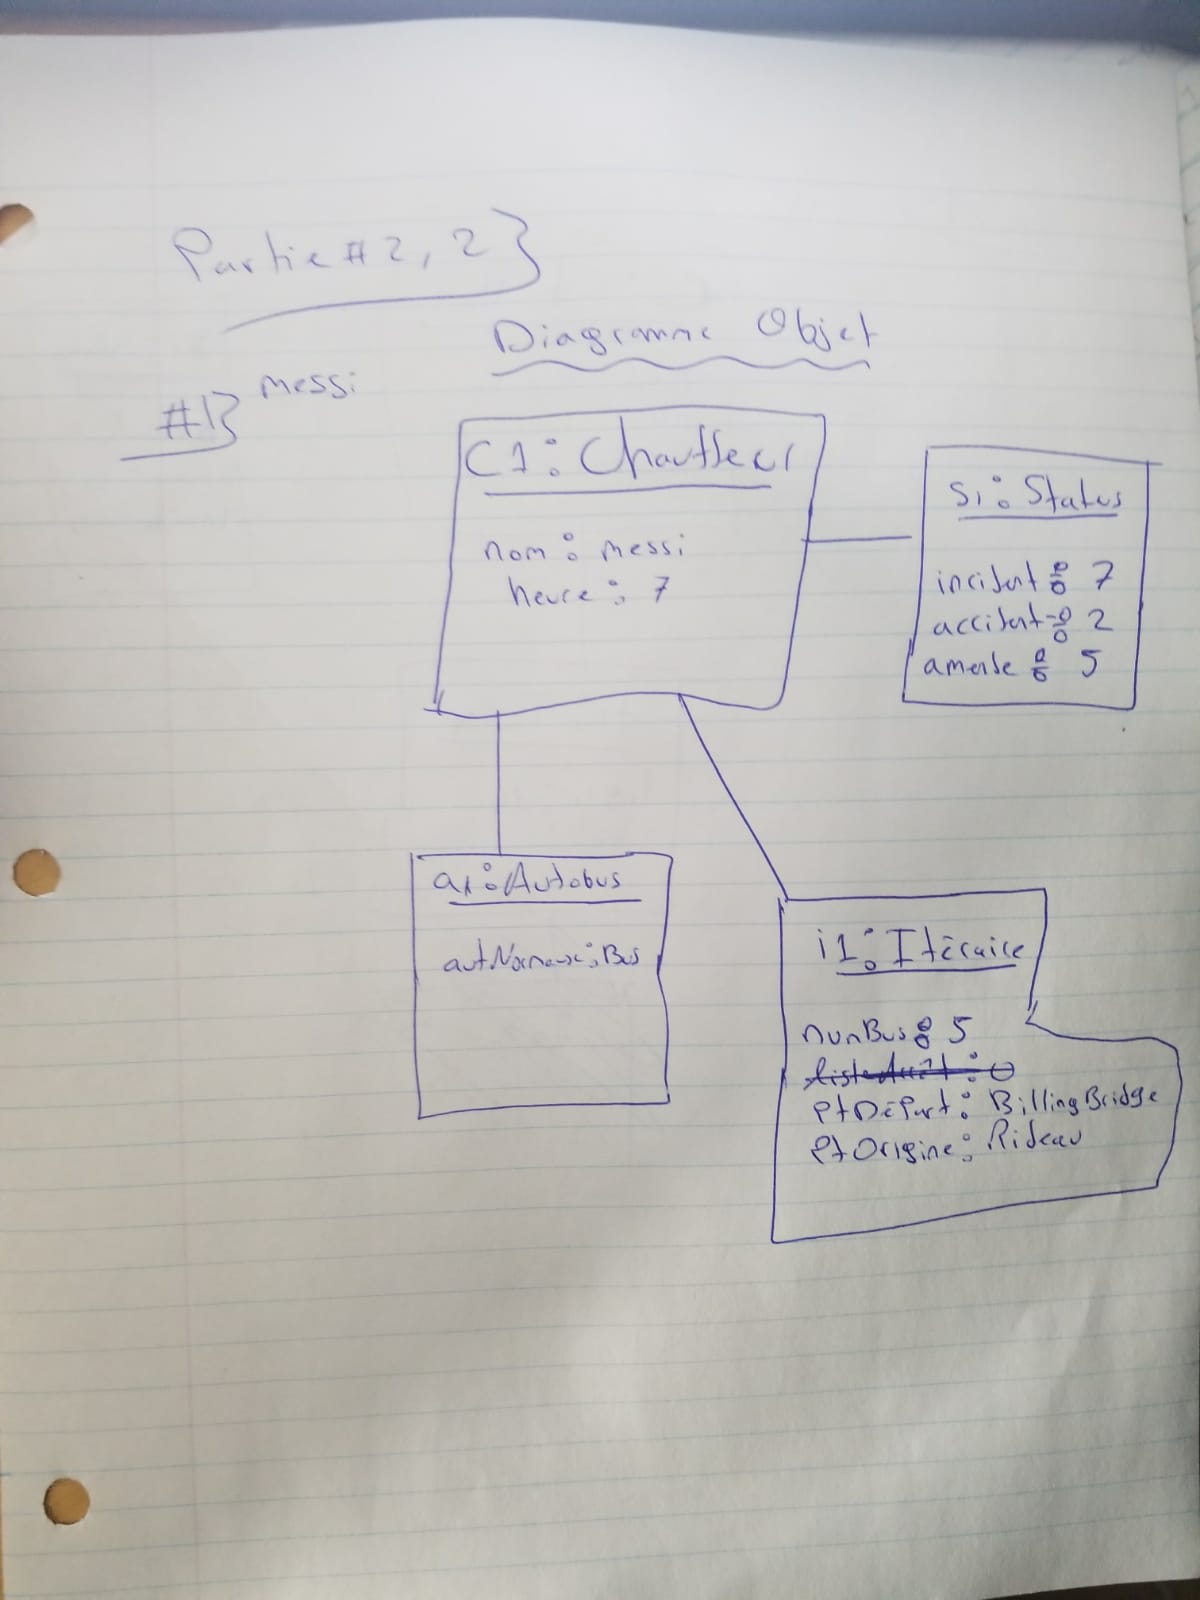 Partie #2, 2}
Diagramme Objet
#1} messi
C1 : Chauffeur
nom : messi
heure : 7
S1 : Status
incident : 7
accident : 2
amende : 5
a1 : Autobus
: Bus
i1 : Itéraire
numBus : 5
ptDépart : BillingBridge
ptOrigine : Rideau